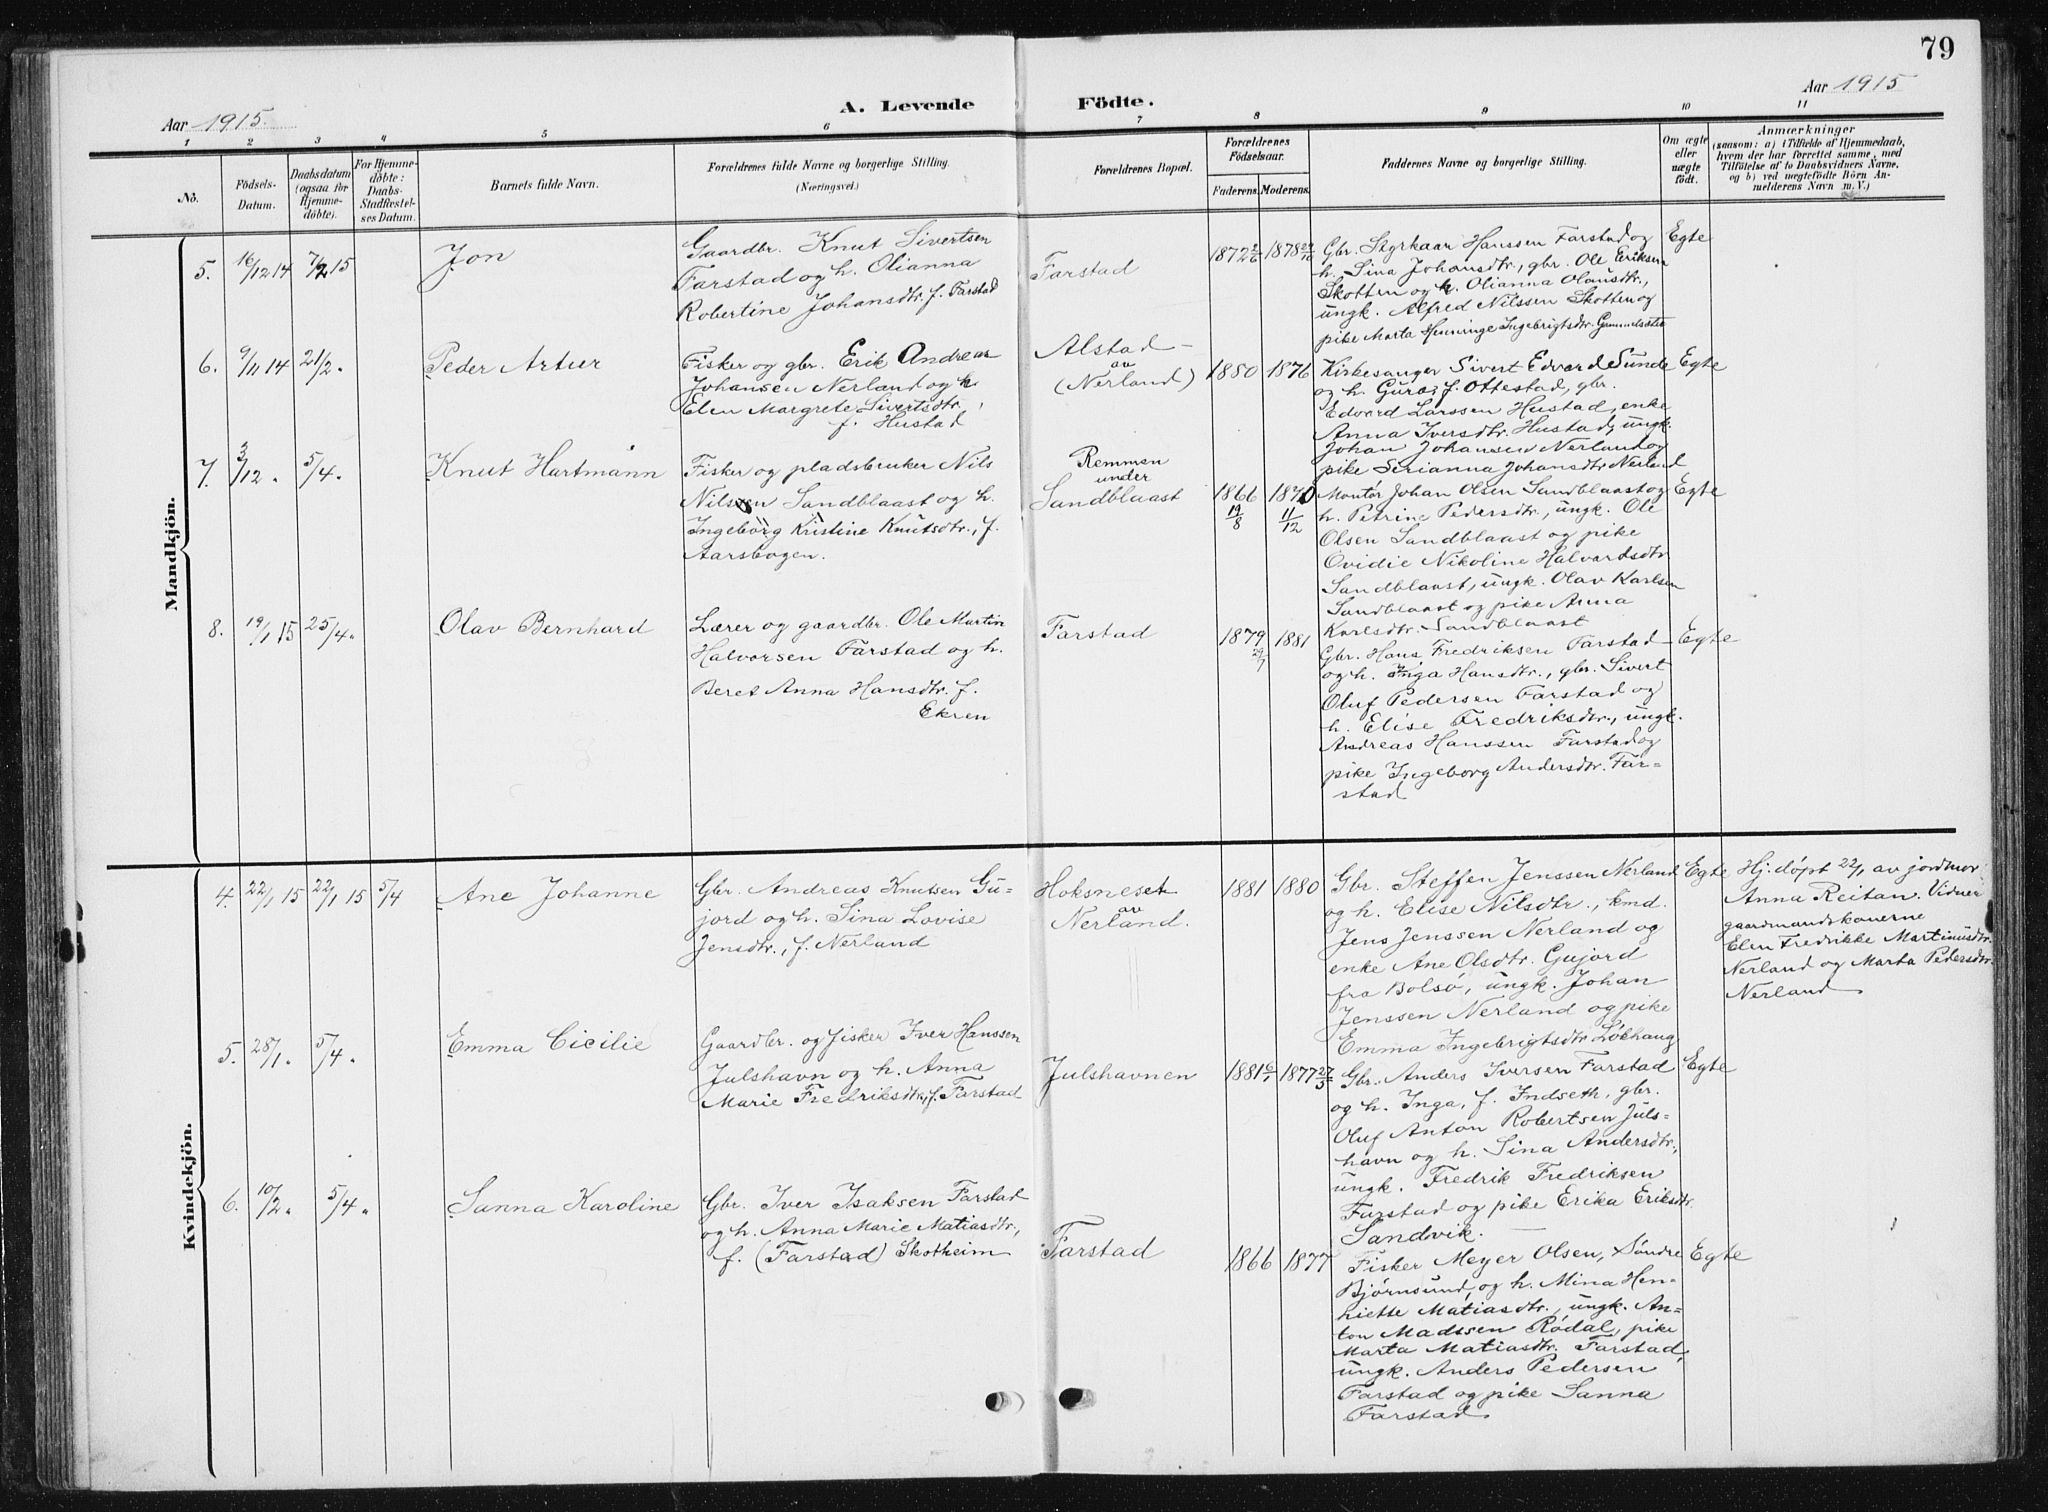 79
A. Levende Födte.
Aar 1915.
Aar 1915
1 2 3 4 5 6 7 8 9 10 11
No.
Födsels-
Datum.
Daabsdatum
(ogsaa for
Hjemme-
döbte).
For Hjemme-
döbte:
Daabs-
Stadfæstel-
ses Datum.
Barnets fulde Navn.
Forældrenes fulde Navne og borgerlige Stilling.
(Næringsvei.)
Forældrenes Bopæl.
Forældrenes
Födselsaar.
Faderens. Moderens.
Faddernes Navne og borgerlige Stilling.
Om ægte
eller
uægte
födt.
Anmærkninger
(saasom: a) i Tilfælde af Hjemmedaab,
hvem der har forrettet samme, med
Tilföielse af to Daabsvidners Navne,
og b) ved uægtefödte Börn An-
melderens Navn m. V.)
Mandkjön.
5. 16/12 14 7/2 15
Jon
Gaardbr. Knut Sivertsen
Farstad og h. Olianna
Robertine Johansdtr. f. Farstad
Farstad
1872 2/6 1878 29/10
Gbr. Styrkaar Hanssen Farstad og
h. Sina Johansdtr., gbr. Ole Eriksen
Skotten og h. Olianna Olausdtr.,
ungk. Alfred Nilssen Skotten og
pike Marta Henninge Ingebrigtsdtr.
Egte
6. 9/11 14 21/2 "
Peder Artur
Fisker og gbr. Erik Andreas
Johansen Nerland og h.
Elen Margrete Sivertsdtr.,
f. Hustad
Alstad
av
(Nerland)
1880 1876
Kirkesanger Sivert Edvard Sunde
og h. Guro, f. Ottestad, gbr.
Edvard Larssen Hustad, enke
Anna Iversdtr. Hustad, ungk.
Johan Johansen Nerland og
pike Serianna Johansdtr. Nerland
Egte
7. 3/12 " 5/4 "
Knut Hartmann
Fisker og pladsbruker Nils
Nilsen Sandblaast og h.
Ingeborg Kristine Knutsdtr., f.
Aarsbogen.
Remmen
under
Sandblaast
1866 19/8 1870 11/12
Montör Johan Olsen Sandblaast og
h. Petrine Pedersdtr., ungk. Ole
Olsen Sandblaast og pike
Ovidie Nikoline Halvardsdtr.
Sandblaast, ungk. Olav Karlsen
Sandblaast og pike Anna
Karlsdtr. Sandblaast
Egte
8. 19/1 15 25/4 "
Olav Bernhard
Lærer og gaardbr. Ole Martin
Halvorsen Farstad og h.
Beret Anna Hansdtr. f.
Ekren
Farstad
1879 29/7 1881
Gbr. Hans Fredriksen Farstad
og h. Inga Hansdtr., gbr. Sivert
Oluf Pedersen Farstad og
h. Elise Fredriksdtr., ungk.
Andreas Hanssen Farstad og
pike Ingeborg Andersdtr. Far-
stad
Egte
Kvindekjön.
4. 22/1 15 22/1 15 5/4
Ane Johanne
Gbr. Andreas Knutsen Gu-
jord og h. Sina Lovise
Jensdtr., f. Nerland
Hoksneset
av
Nerland.
1881 1880
Gbr. Steffen Jenssen Nerland
og h. Elise Nilsdtr., kmd.
Jens Jenssen Nerland og
enke Ane Olsdtr. Gujord
fra Bolsø, ungk. Johan
Jenssen Nerland og pike
Emma Ingebrigtsdtr. Lökhaug
Egte
Hj. döpt 22/1 av jordmor
Anna Reitan. Vidner
gaardmandskonerne
Elen Fredrikke Martinusdtr.
Nerland og Marta Pedersdtr.
Nerland
5. 28/1 " 5/4 "
Emma Cicilie
Gaardbr. og fisker Iver Hanssen
Julshavn og h. Anna
Marie Fredriksdtr., f. Farstad
Julshavnen
1881 6/1 1877 27/5
Gbr. Anders Iversen Farstad
og h. Inga, f. Indseth, gbr.
Oluf Anton Robertsen Juls-
havn og h. Sina Andersdtr.,
ungk. Fredrik Fredriksen
Farstad og pike Erika Eriksdtr.
Sandvik.
Egte
6. 10/2 " 5/4 "
Sanna Karoline
Gbr. Iver Isaksen Farstad
og h. Anna Marie Matiasdtr.,
f. (Farstad) Skotheim
Farstad
1866 1877
Fisker Meyer Olsen, Søndre
Bjørnsund, og h. Mina Hen-
riette Matiasdtr., ungk. An-
ton Madssen Rødal, pike
Marta Matiasdtr. Farstad,
ungk. Anders Pedersen
Farstad og pike Sanna
Farstad
Egte